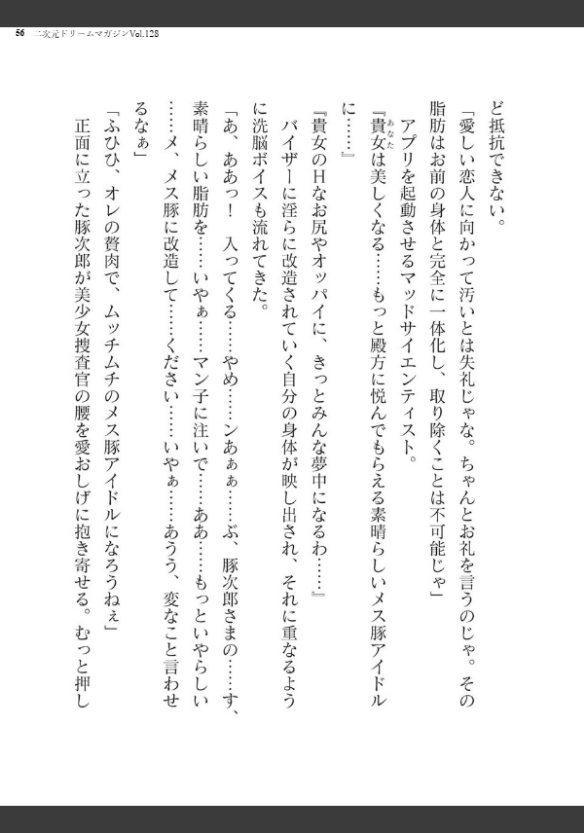 56 二次元ドリームマガジンVol.128
ど抵抗できない。
「愛しい恋人に向かって汚いとは失礼じゃな。ちゃんとお礼を言うのじゃ。その
脂肪はお前の身体と完全に一体化し、取り除くことは不可能じゃ」
アプリを起動させるマッドサイエンティスト。
『貴女あなたは美しくなる……もっと殿方に悦んでもらえる素晴らしいメス豚アイドル
に……』
『貴女のＨなお尻やオッパイに、きっとみんな夢中になるわ……』
バイザーに淫らに改造されていく自分の身体が映し出され、それに重なるよう
に洗脳ボイスも流れてきた。
「あ、ああっ！　入ってくる……やめ……ンあぁぁ……ぶ、豚次郎さまの……す、
素晴らしい脂肪を……いやぁ……マン子に注いで……ああ……もっといやらしい
……メ、メス豚に改造して……ください……いやぁ……あうう、変なこと言わせ
るなぁ」
「ふひひ、オレの贅肉で、ムッチムチのメス豚アイドルになろうねぇ」
正面に立った豚次郎が美少女捜査官の腰を愛おしげに抱き寄せる。むっと押し